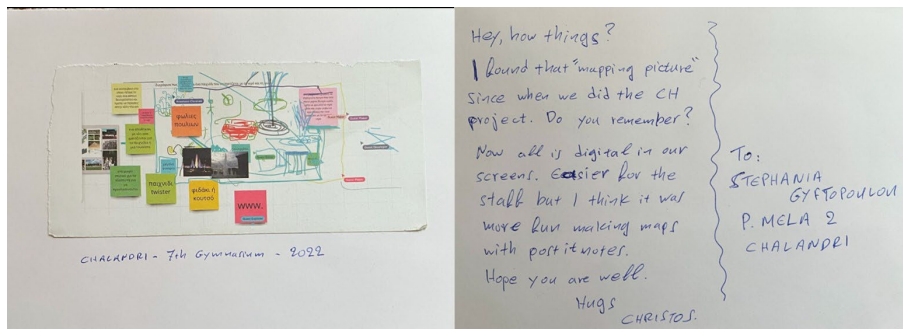 φωλιες
πουλιων
παιχνιδι
twister
φιδάκι ή
κουτσό
www.
CHALANDRI - 7th Gymnasium - 2022
Hey, how things?
I found that "mapping picture"
since when we did the CH
project. Do you remember?
Now all is digital in our
screens. Easier for the
staff but I think it was
more fun making maps
with post it notes.
Hope you are well.
Hugs
CHRISTOS.
To:
STEPHANIA
GYFTOPOULOU
P. MELA 2
CHALANDRI